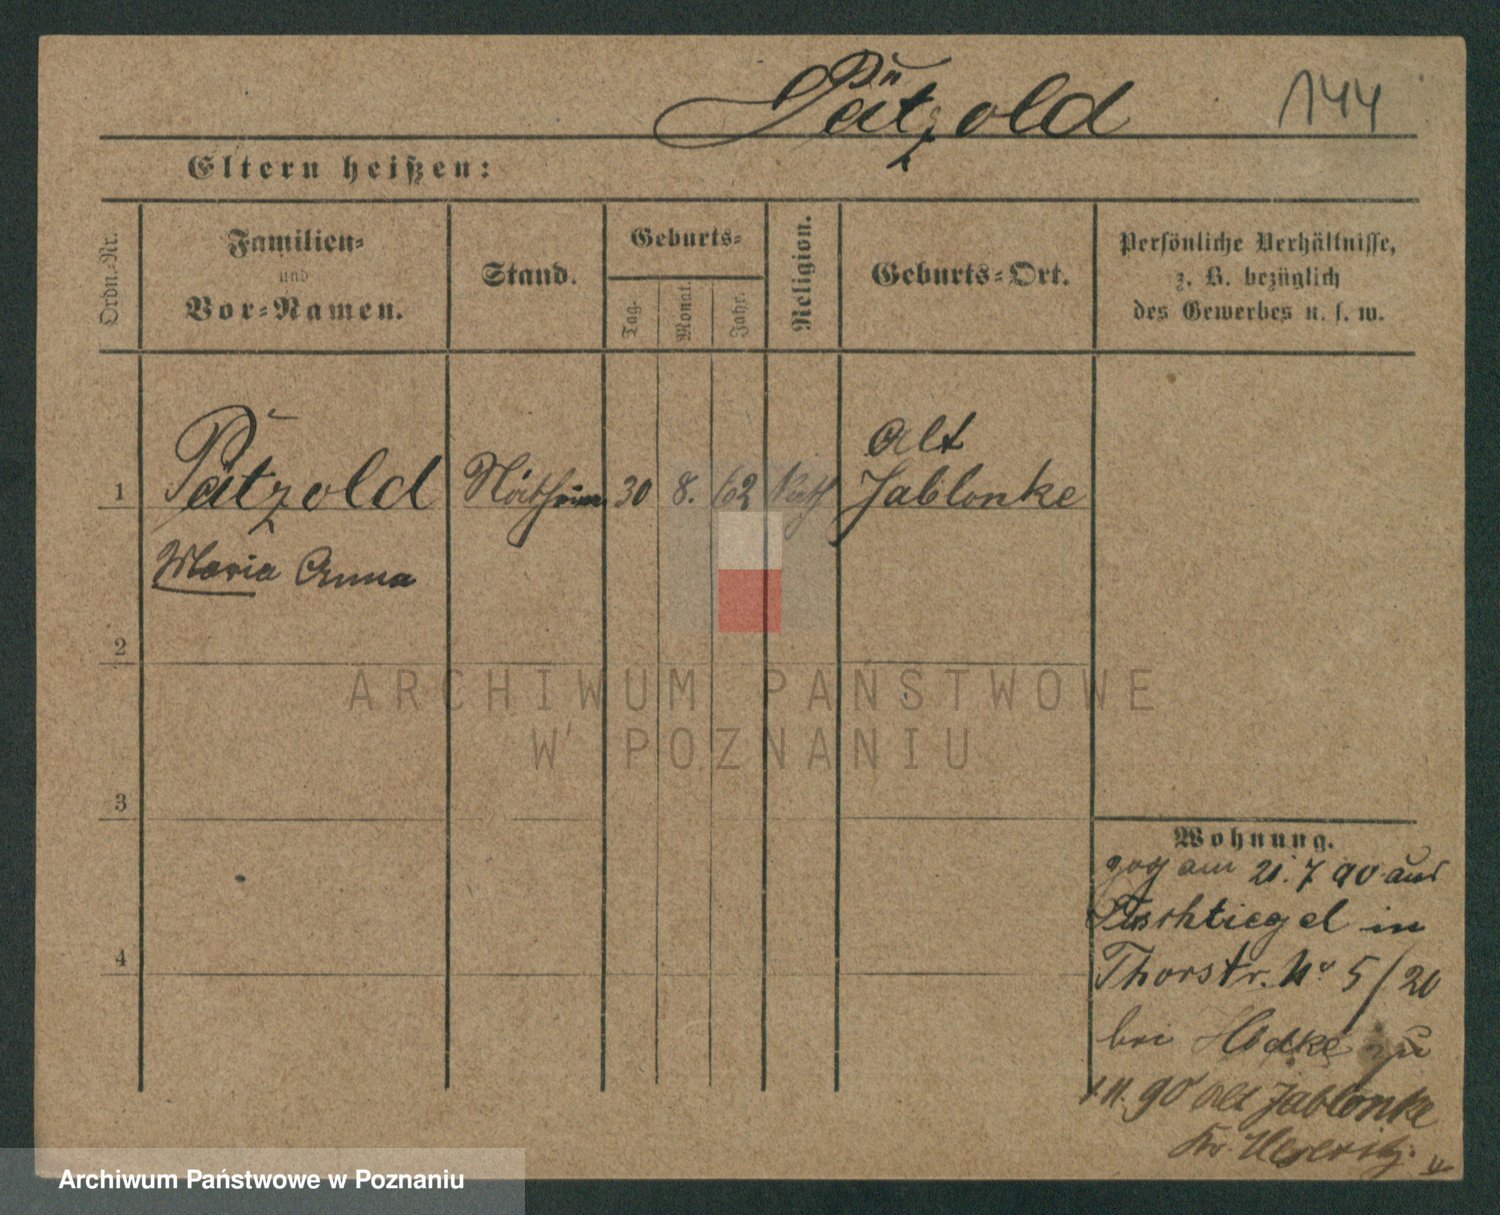 Pätzold 144
Eltern heißen:
Ordn.-Nr.
Familien-
und
Vor-Namen.
Stand.
Geburts-
Tag.
Monat.
Jahr.
Religion.
Geburts-Ort.
Persönliche Verhältnisse,
z. B. bezüglich
des Gewerbes u. s. w.
Alt
1 Pätzold 30 8. 62 Kath Jablonke
Maria Anna
2
ARCHIWUM PAŃSTWOWE
W POZNANIU
3
Wohnung.
zog am 21. 7 90 aus
Tirschtiegel in
4
Thorstr. N° 5/20
bei zu
11. 90 Alt Jablonke
Kr. Meseritz.
Archiwum Państwowe w Poznaniu